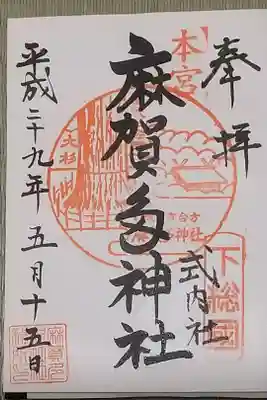 奉拝
本宮
下総國
式内社
麻賀多神社
大杉
平成二十九年五月十五日